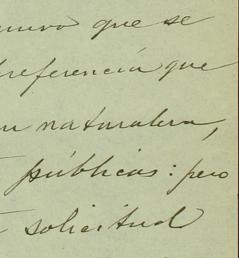 que se
referencia que
naturaleza,
públicas: pero
solicitud